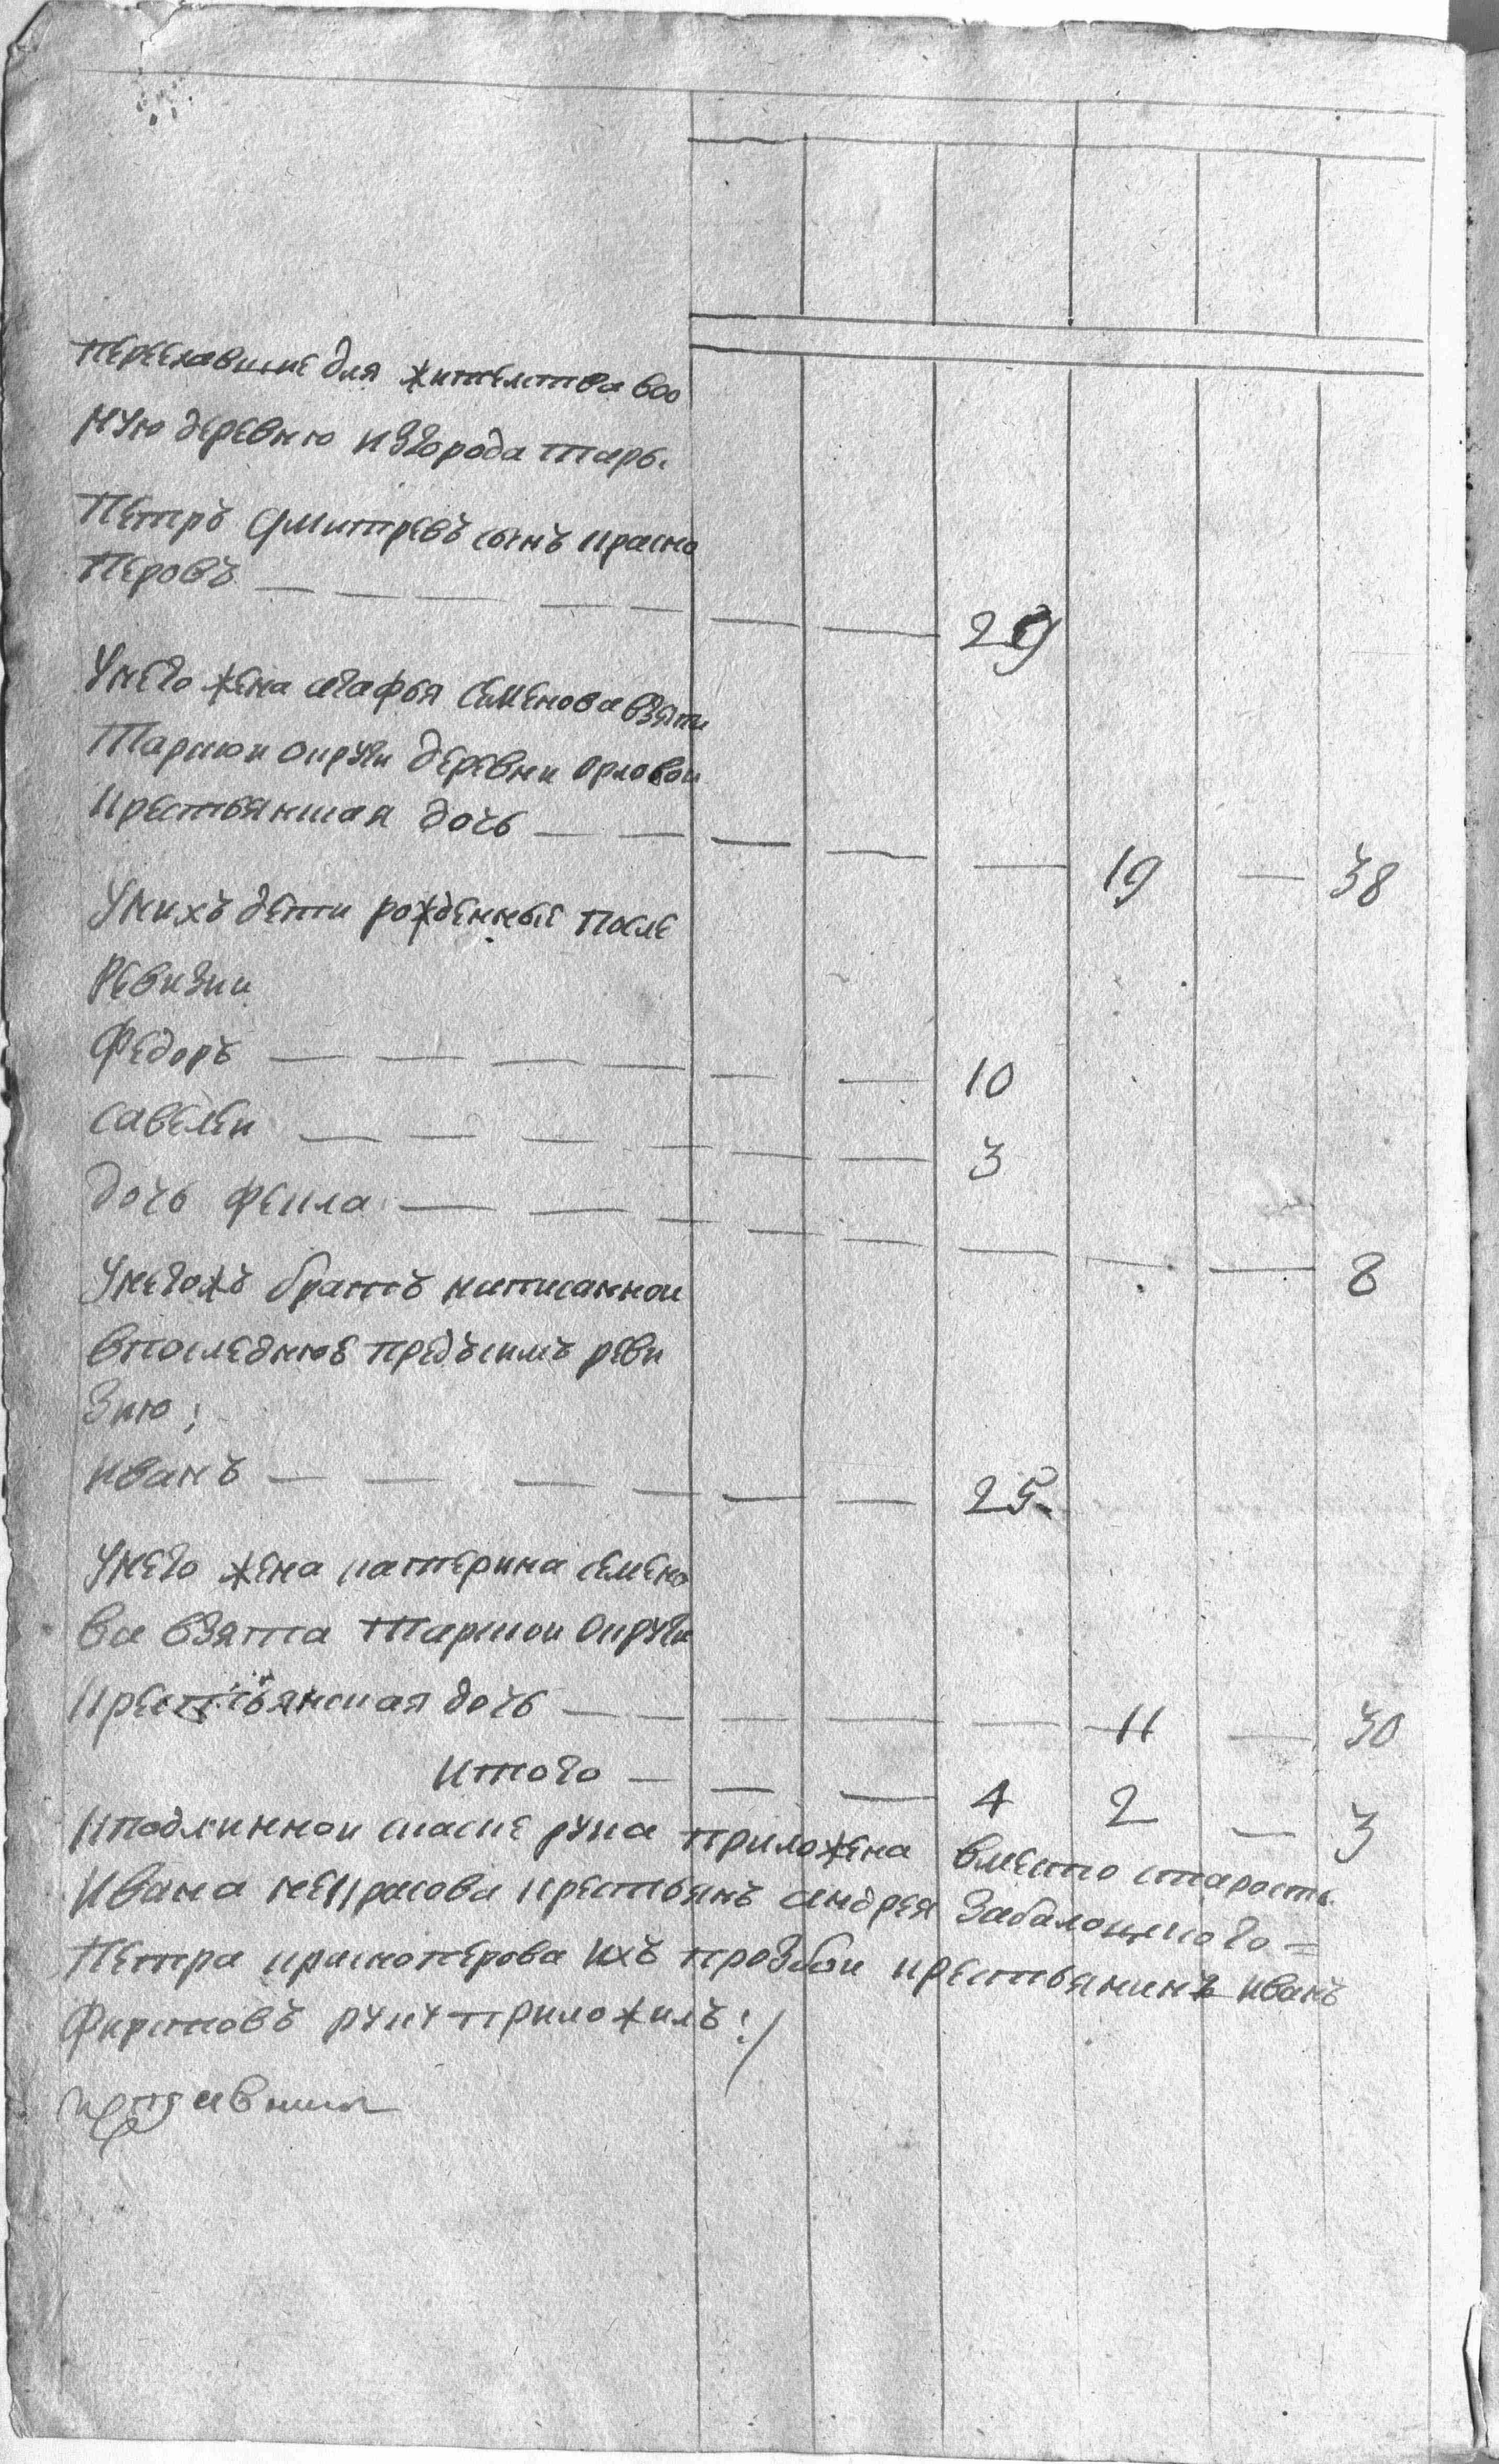 переехавшие для жителства воо
ную деревню изгорода тары.
Петръ Дмитревъ сынъ красно
перовъ — — — — — — — 29
Унего жена агафья Семенова взята
Тарскои округи деревни орловои
крестьянская дочь — — — — — 19 — 38
Унихъ дети рожденные после
Ревизии
Федоръ — — — — — — 10
савелеи — — — — — — 3
дочь фекла — — — — — — — — 8
Унегожъ братъ написаннои
впоследнюю предъсимъ реви
зию;
иванъ — — — — — — 25
Унего жена катерина семено
ва взята Тарскои округи
крестьянская дочь — — — — — 11 — 30
итого — — — 4 2 — 3
кподлиннои скаске рука приложена вместо старосты
Ивана некрасова крестьянъ андрея Заболоцкого =
Петра красноперова ихъ прозбои крестьянинъ иванъ
Фирстовъ руку приложилъ :/